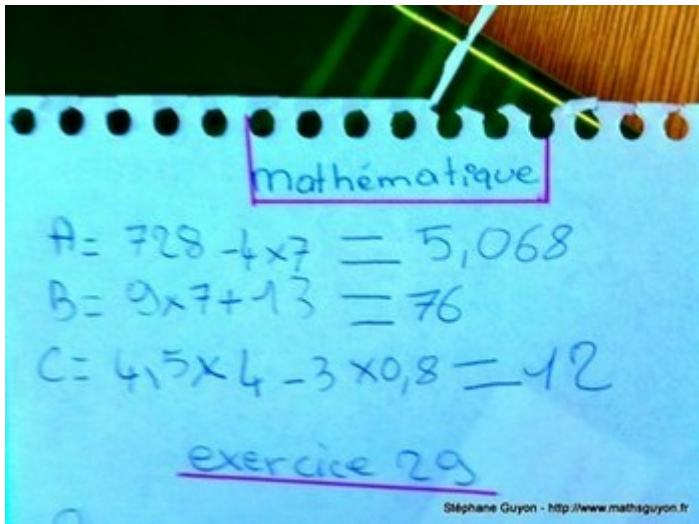 mathématique
A= 728 -4x7 = 5,068
B= 9x7+13 = 76
C= 4,5x4 -3x0,8 = 12
exercice 29
Stéphane Guyon - http://www.mathsguyon.fr